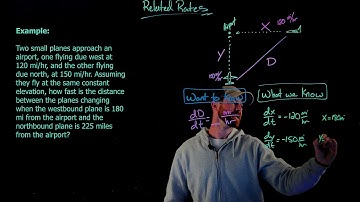 Related Rates
Example:
Two small planes approach an
airport, one flying due west at
120 mi/hr, and the other flying
due north, at 150 mi/hr. Assuming
they fly at the same constant
elevation, how fast is the distance
between the planes changing
when the westbound plane is 180
mi from the airport and the
northbound plane is 225 miles
from the airport?
Airport
X
Y
D
Want to know
What we know
dD/dt =
hr
dx/dt = -120 mi/hr
X=180mi
dy/dt = -150 mi/hr